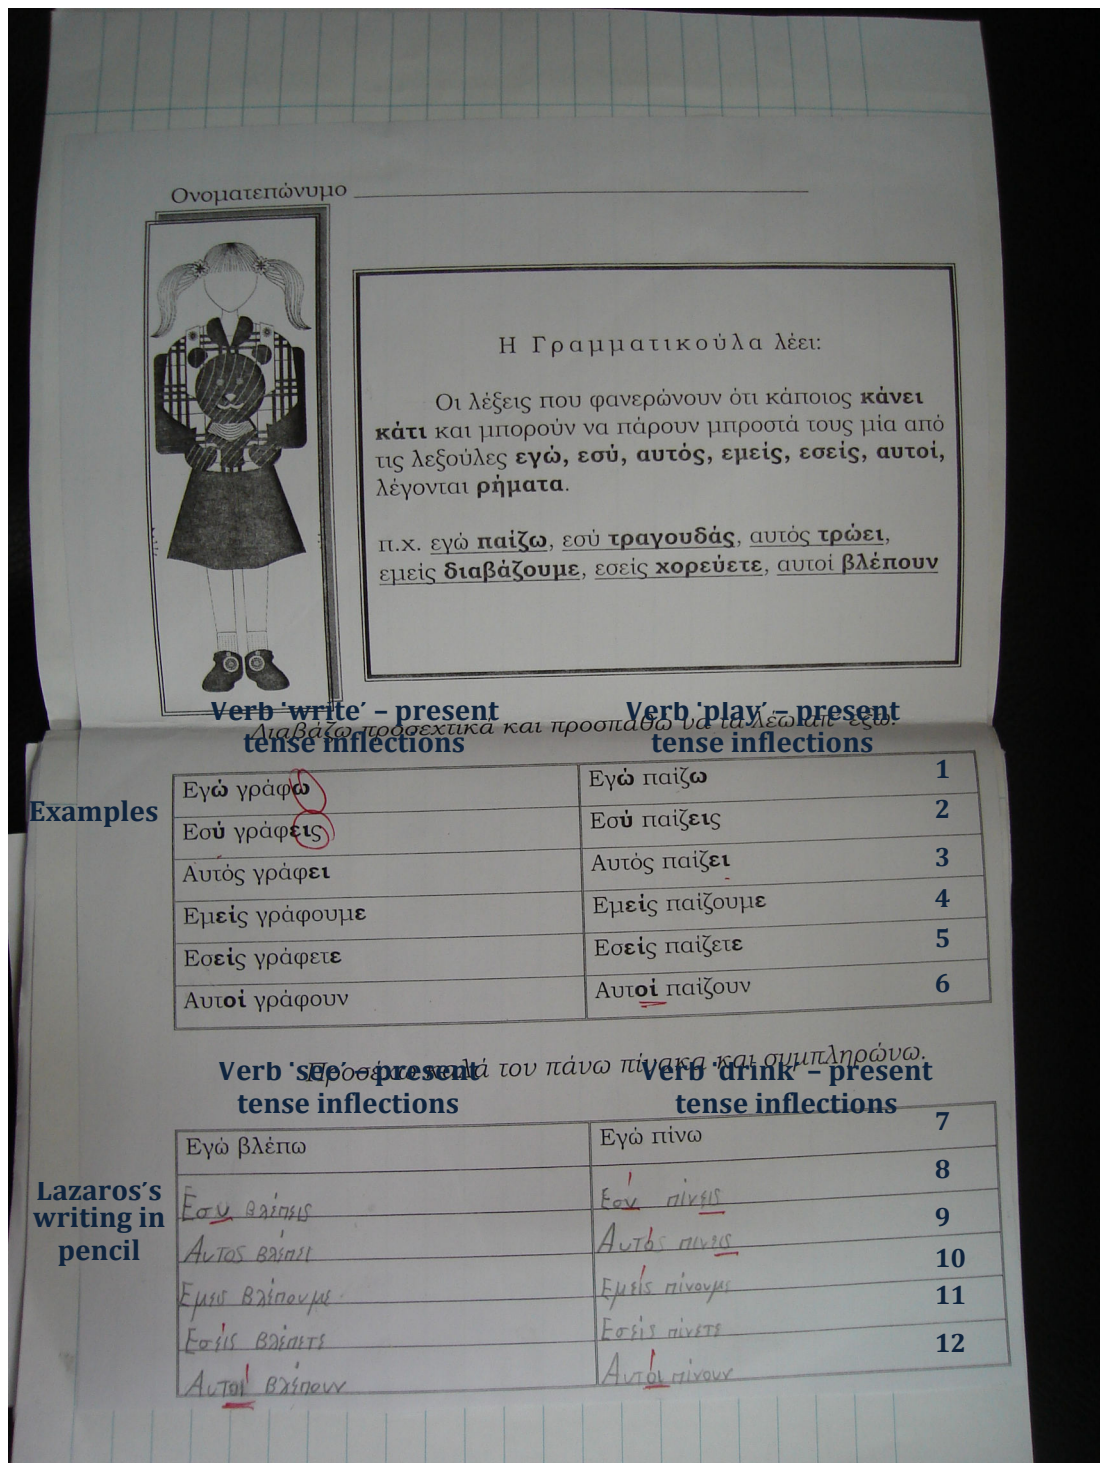 Ονοματεπώνυμο
Η Γραμματικούλα λέει:
Οι λέξεις που φανερώνουν ότι κάποιος κάνει
κάτι και μπορούν να πάρουν μπροστά τους μία από
τις λεξούλες εγώ, εσύ, αυτός, εμείς, εσείς, αυτοί,
λέγονται ρήματα.
π.χ. εγώ παίζω, εσύ τραγουδάς, αυτός τρώει,
εμείς διαβάζουμε, εσείς χορεύετε, αυτοί βλέπουν
Verb ‘write’ – present
tense inflections
Verb ‘play’ – present
tense inflections
Διαβάζω προσεχτικά και προσπαθώ να τα λέω απ’ έξω.
Examples
Εγώ γράφω Εγώ παίζω 1
Εσύ γράφεις Εσύ παίζεις 2
Αυτός γράφει Αυτός παίζει 3
Εμείς γράφουμε Εμείς παίζουμε 4
Εσείς γράφετε Εσείς παίζετε 5
Αυτοί γράφουν Αυτοί παίζουν 6
Verb ‘see’ – present
tense inflections
Verb ‘drink’ – present
tense inflections
καλά τον πάνω πίνακα και συμπληρώνω.
Lazaros’s
writing in
pencil
Εγώ βλέπω Εγώ πίνω 7
Εσυ βλέπεις Εσύ πίνεις 8
Αυτος βλέπει Αυτός πίνεις 9
Εμεις βλέπουμε Εμείς πίνουμε 10
Εσείς βλέπετε Εσείς πίνετε 11
Αυτοί βλέπουν Αυτοί πίνουν 12